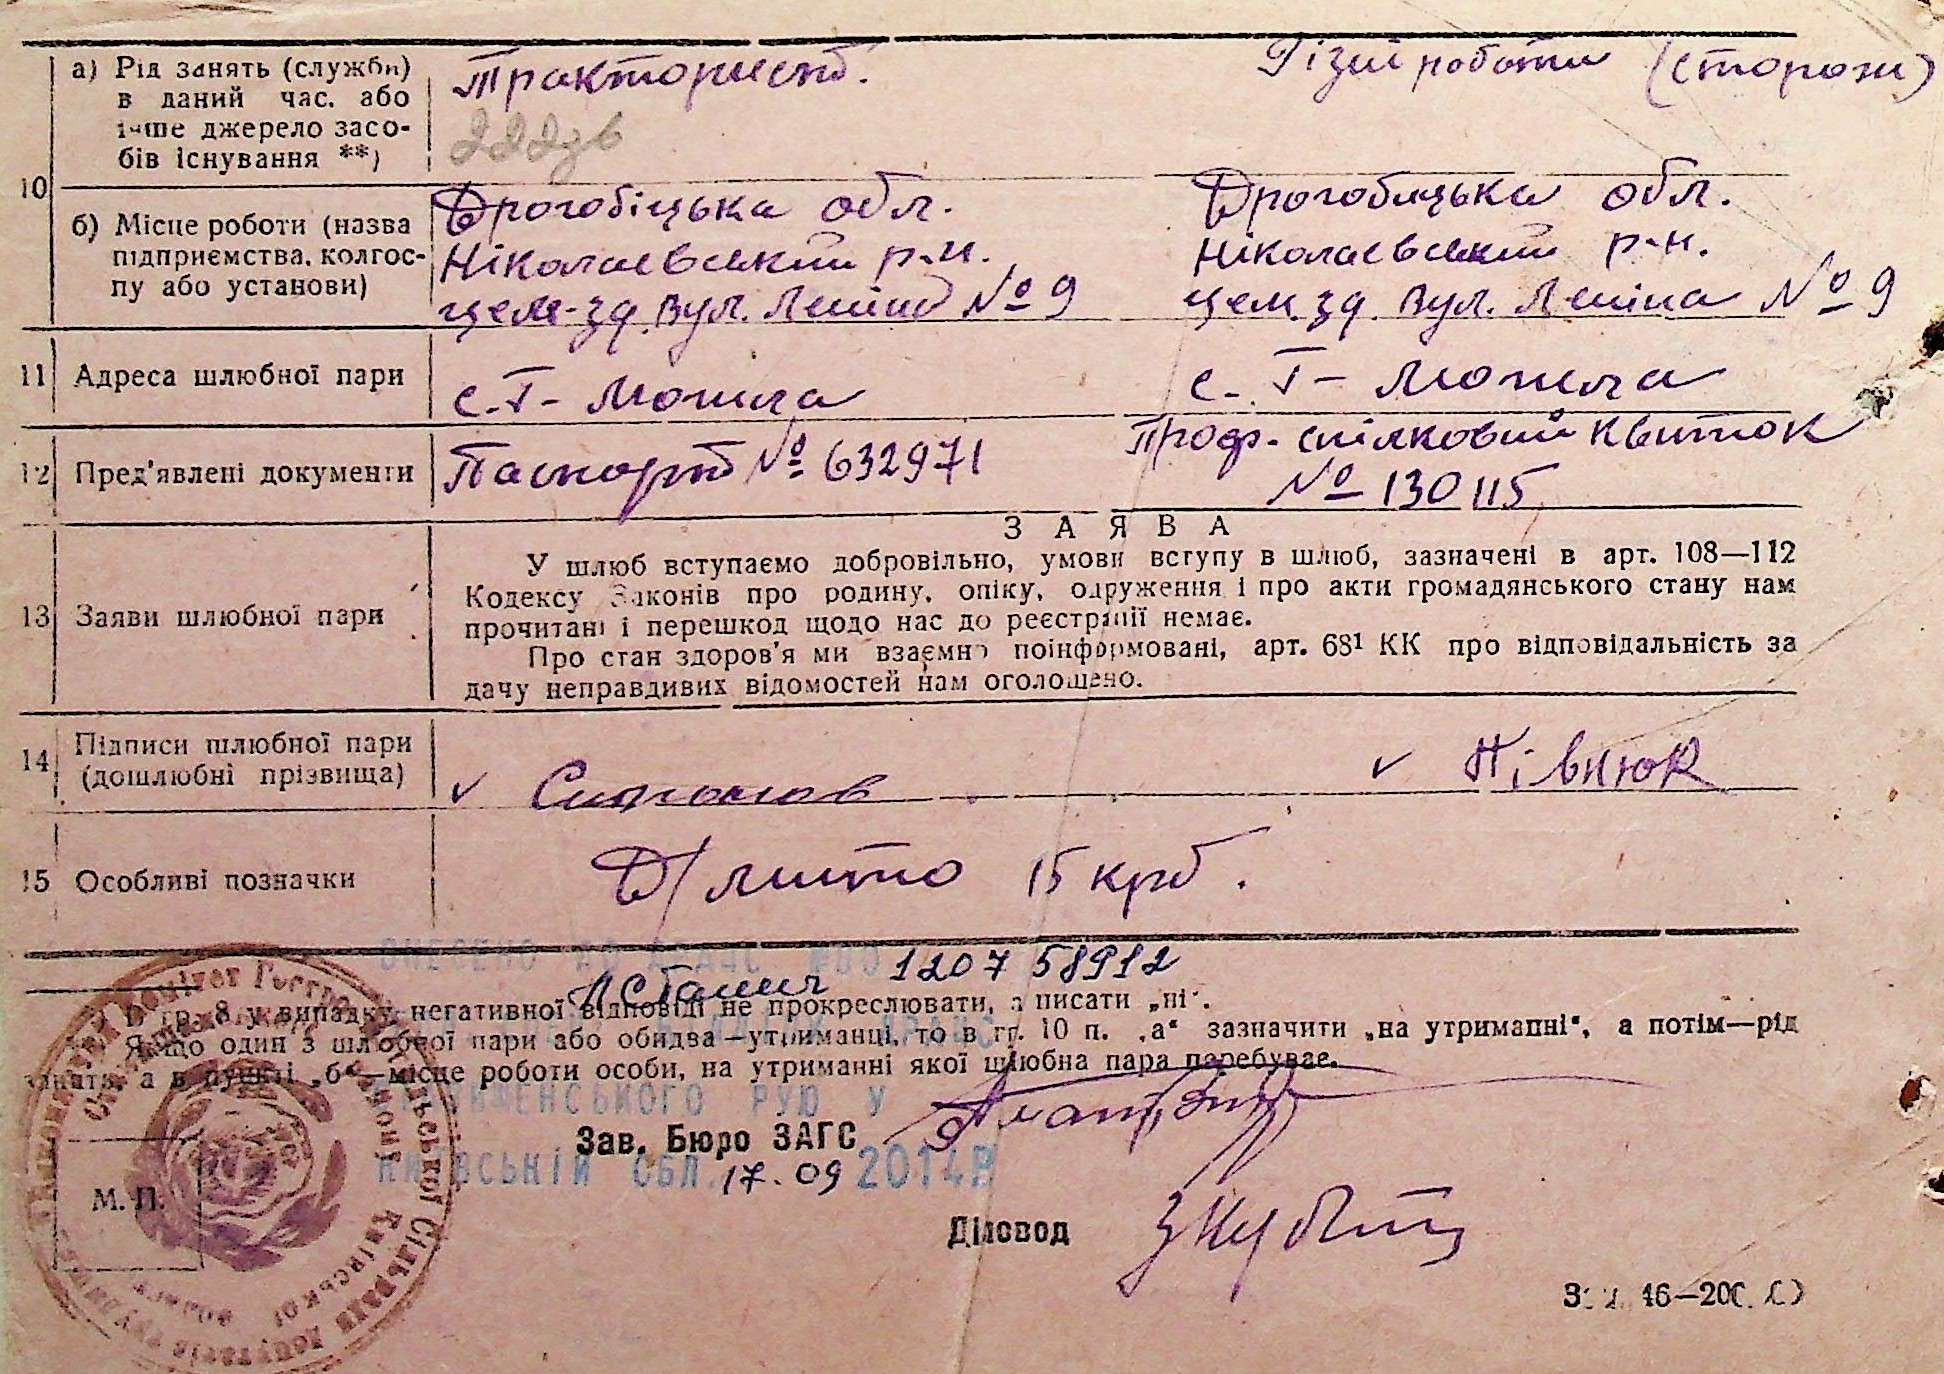 10
а) Рід занять (служби) в даний час. або інше джерело засобів існування **)
Тракторист.
Різні роботи (сторож)
б) Місце роботи (назва підприємства, колгоспу або установи)
Дрогобіцька обл.
Ніколаєвський р-н.
цем-зд. вул. Леніна № 9
Дрогобицька обл.
Ніколаєвський р-н.
цем. зд. вул. Леніна № 9
11 Адреса шлюбної пари
с. Г- Могила
с. Г- Могила
12 Пред'явлені документи
Паспорт № 632971
Проф-спілковий квиток
№ 130115
13 Заяви шлюбної пари
ЗАЯВА
У шлюб вступаємо добровільно, умови вступу в шлюб, зазначені в арт. 108—112
Кодексу Законів про родину, опіку, одруження і про акти громадянського стану нам
прочитані і перешкод щодо нас до реєстрації немає.
Про стан здоров'я ми взаємно поінформовані, арт. 68¹ КК про відповідальність за
дачу неправдивих відомостей нам оголошено.
14 Підписи шлюбної пари
(дошлюбні прізвища)
Півнюк
15 Особливі позначки
Д/мито 15 крб.
1207 58912
В гр. 8 у випадку негативної відповіді не прокреслювати, а писати „ні".
Якщо один з шлюбної пари або обидва—утриманці, то в гр. 10 п. „а" зазначити „на утриманні", а потім—рід
занять, а в пункті „б"—місце роботи особи, на утриманні якої шлюбна пара перебуває.
РУЮ У
Зав. Бюро ЗАГС
КИЇВСЬКІЙ ОБЛ. 17.09 2014Р
М. П.
Діловод